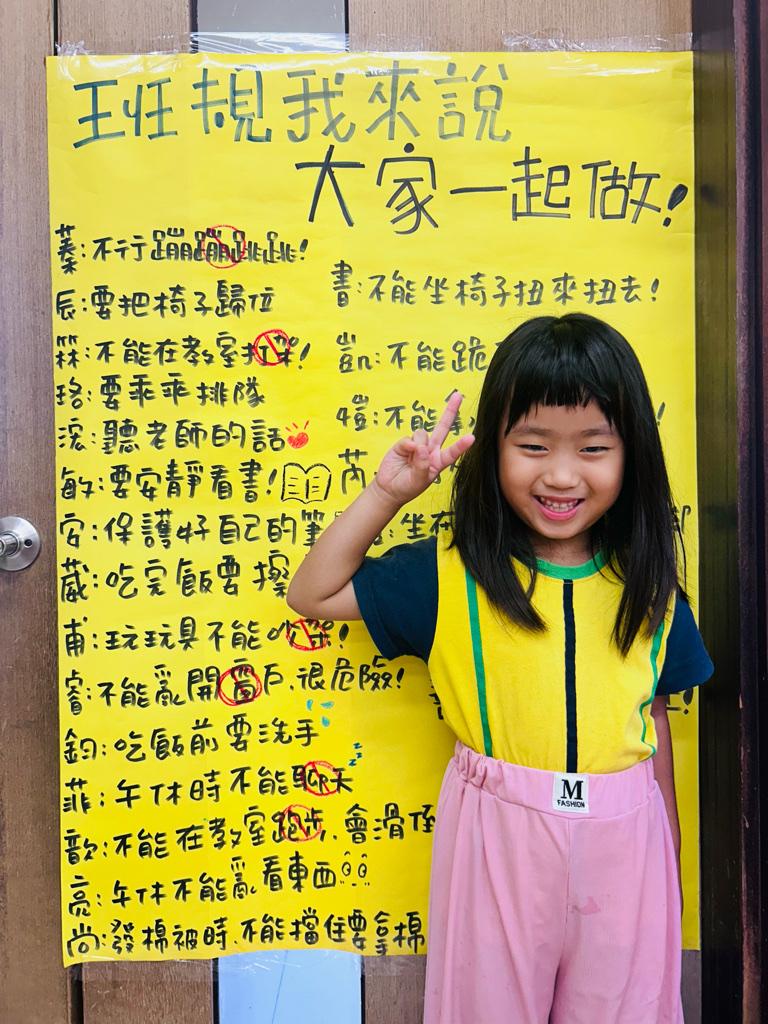 班規我來說
大家一起做!
蓁:不行蹦蹦跳跳!
辰:要把椅子歸位
霖:不能在教室打架!
珞:要乖乖排隊
浤:聽老師的話
敏:要安靜看書!
安:保護好自己的筆
葳:吃完飯要擦
甫:玩玩具不能吵架!
睿:不能亂開窗戶.很危險!
鈞:吃飯前要洗手
菲:午休時不能聊天
歆:不能在教室跑步.會滑倒
亮:午休不能亂看東西
尚:發棉被時.不能擋住要拿棉
書:不能坐椅子扭來扭去!
凱:不能跪
愷:不能
芮:
坐在
M
FASHION